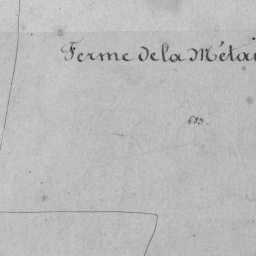 Ferme de la Métai